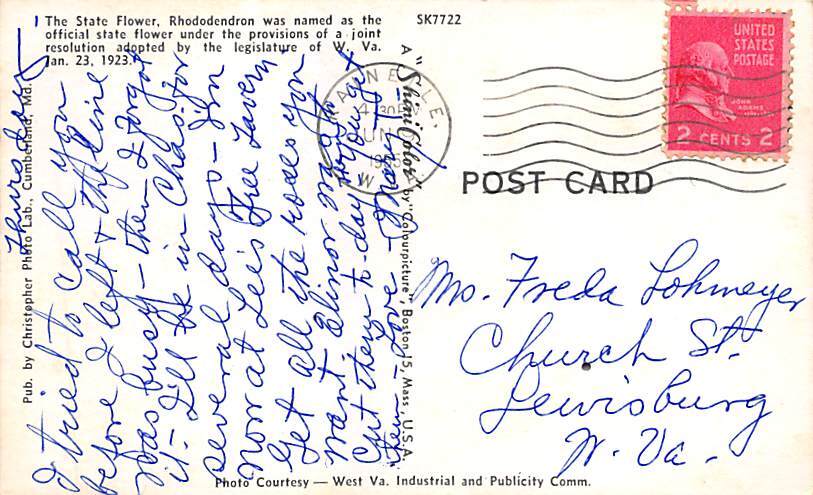 The State Flower, Rhododendron was named as the
official state flower under the provisions of a joint
resolution adopted by the legislature of W. Va.
Jan. 23, 1923.
SK7722
UNITED
STATES
POSTAGE
JOHN
ADAMS
2 CENTS 2
POST CARD
Thursday
I tried to call you
before I left & the line
was busy - then I forgot
it - I'll be in Chas. for
several days - I'm
now at Lee's Tree Tavern
Get all the roses you
want. Elinor may
Cut them to-day
them - Love - Mary
Mo. Freda Lohmeyer
Church St.
Lewisburg
W. Va.
Pub. by Christopher Photo Lab., Cumberland, Md.
A "Shini-Color" by "Colourpicture", Boston 15, Mass. U.S.A.
Photo Courtesy — West Va. Industrial and Publicity Comm.